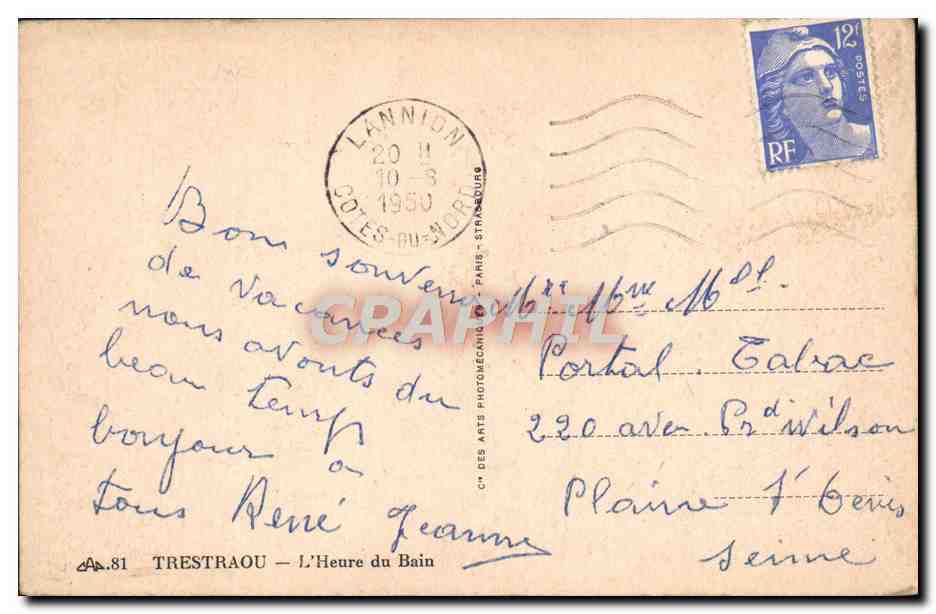 12F
POSTES
RF
LANNION
20 H
10-8
1950
COTES-DU-NORD
Bon souvenir
de vacances
nous avonts du
beau temps
bonjour a
tous René Jeanne
Cie DES ARTS PHOTOMÉCANIQUES - PARIS - STRASBOURG
Mr Mme Mll.
Portal. Tabac
220 aven. Prd Wilson
Plaine St Denis
Seine
CAP.81 TRESTRAOU – L'Heure du Bain
CRAPHIL